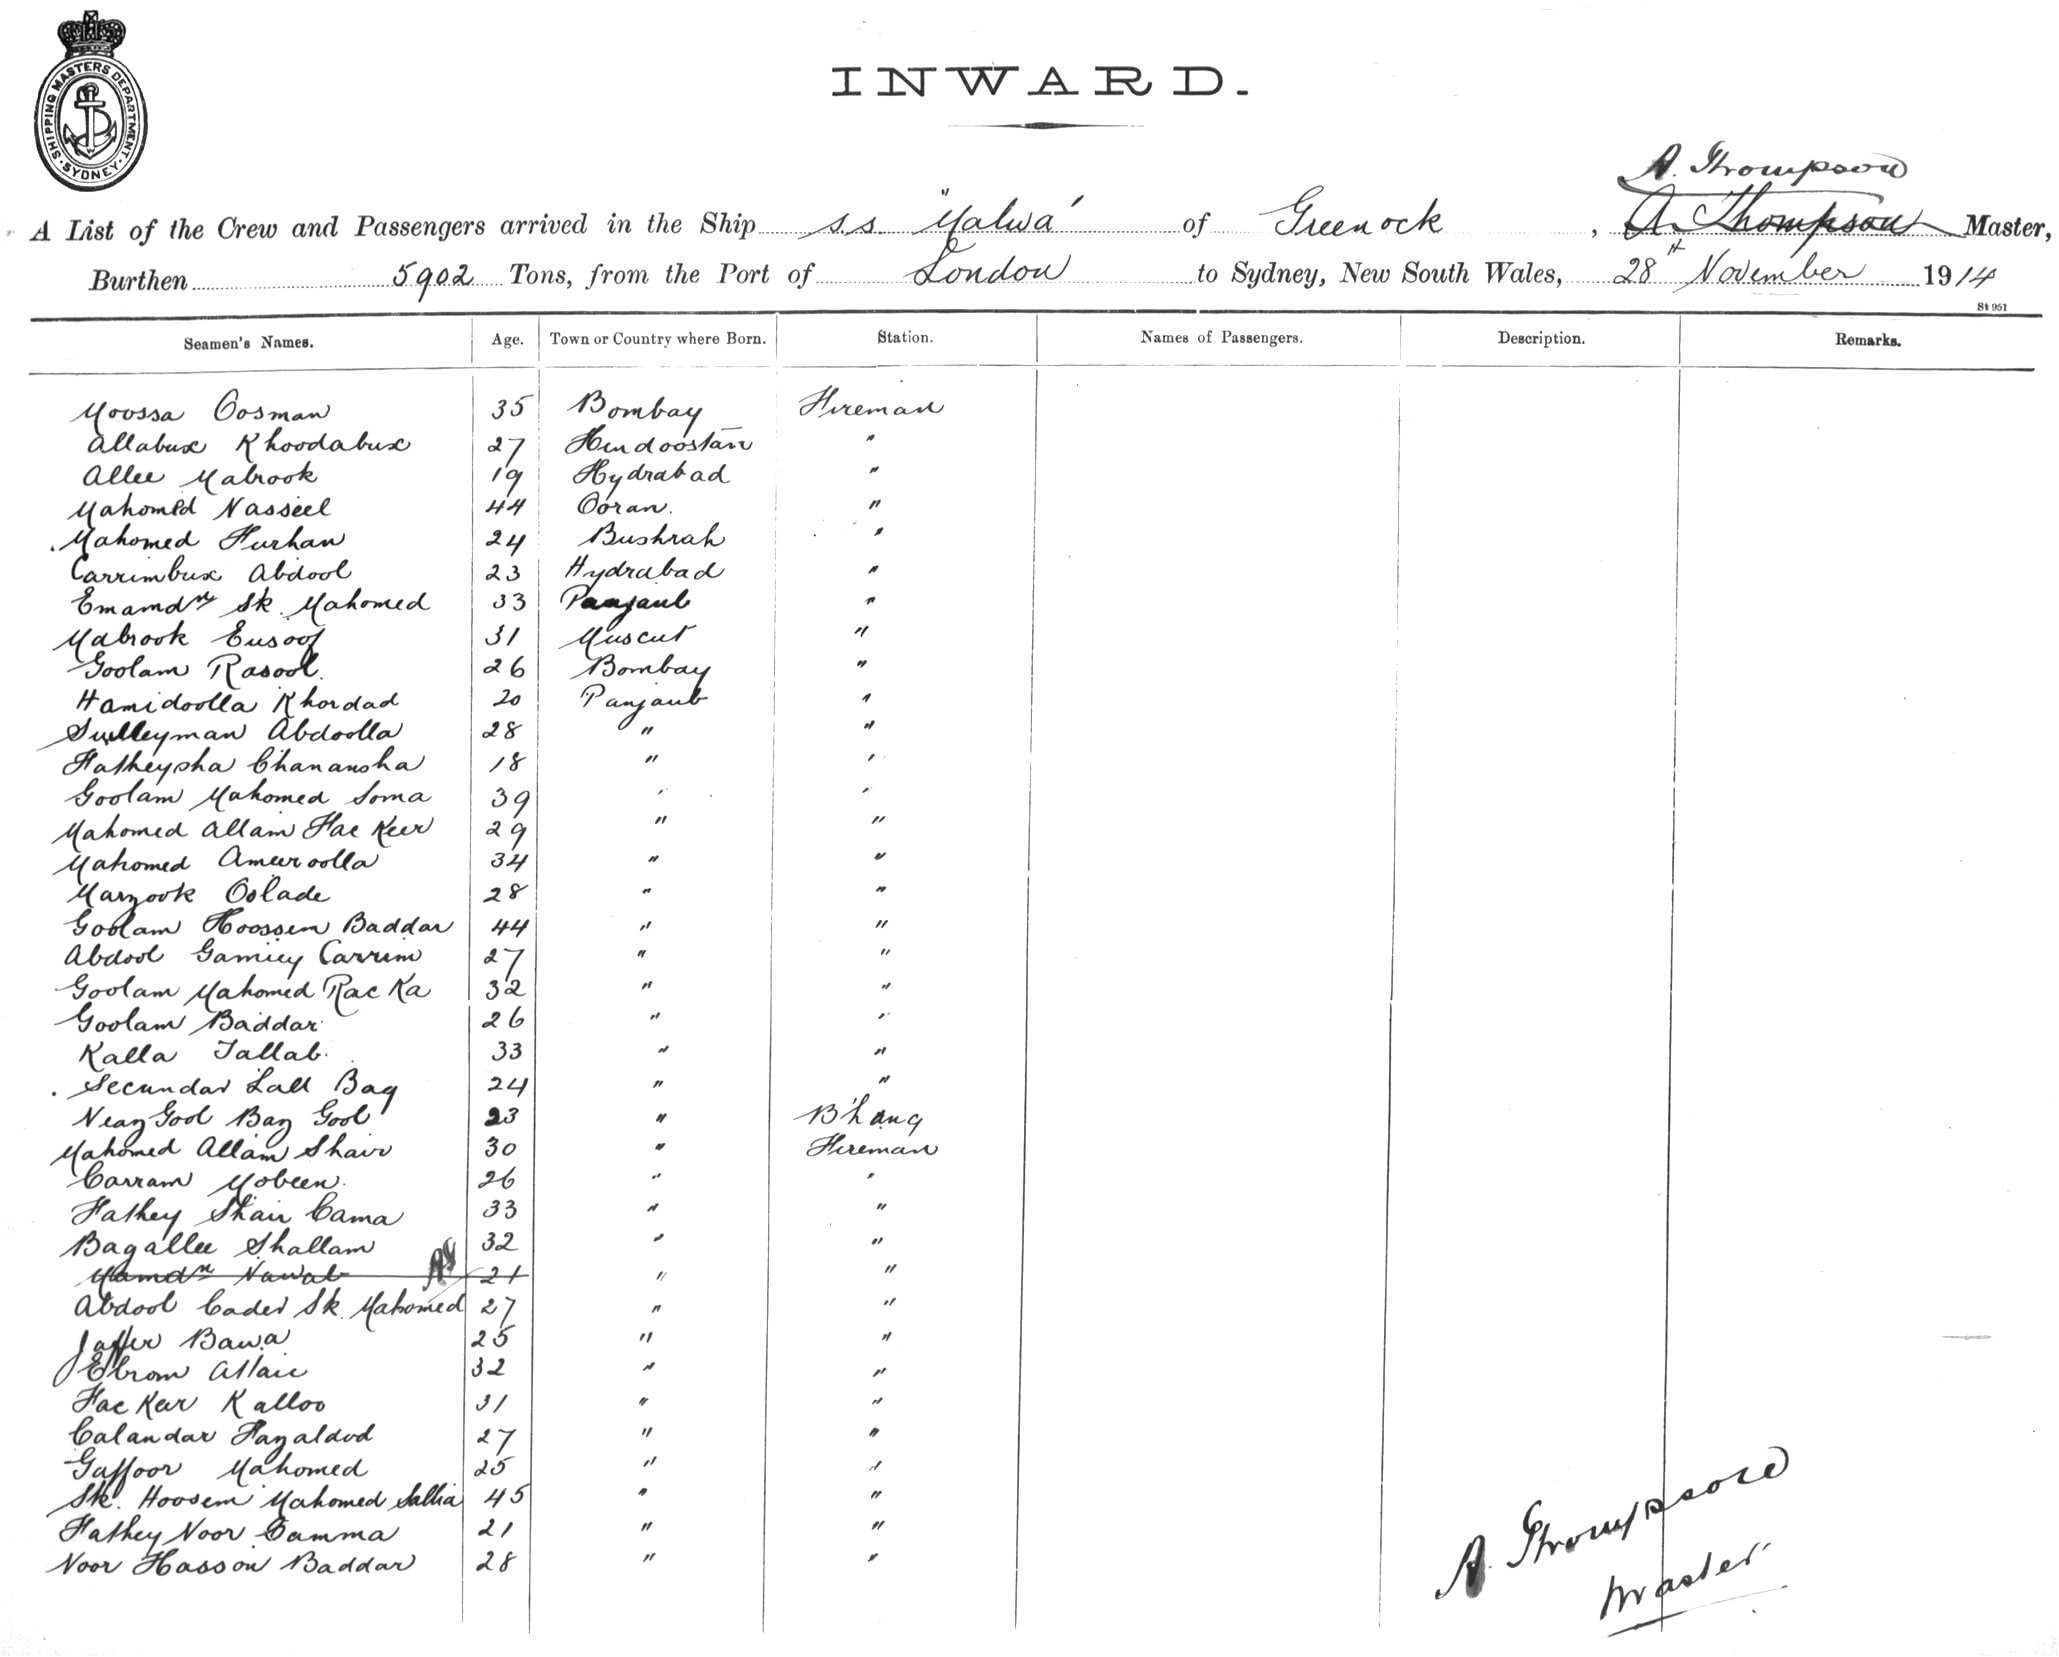 SHIPPING MASTERS DEPARTMENT. SYDNEY
INWARD.
A. Thompson
A List of the Crew and Passengers arrived in the Ship s.s. "Malwa" of Greenock, A. Thompson Master,
Burthen 5902 Tons, from the Port of London to Sydney, New South Wales, 28th November 1914
St 951
Seamen's Names. Age. Town or Country where Born. Station. Names of Passengers. Description. Remarks.
Moossa Oosman 35 Bombay Fireman
Allabux Khoodabux 27 Hindoostan "
Allee Mabrook 19 Hydrabad "
Mahomed Nasseel 44 Ooran. "
Mahomed Furhan 24 Bushrah "
Carrimbux Abdool 23 Hydrabad "
Emamdn Sk. Mahomed 33 Panjaub "
Mabrook Eusoof 31 Muscut "
Goolam Rasool. 26 Bombay "
Hamidoolla Khordad 20 Panjaub "
Sulleyman Abdoolla 28 " "
Fatheysha Chanansha 18 " "
Goolam Mahomed Soma 39 " "
Mahomed Allam Fac Keer 29 " "
Mahomed Ameeroolla 34 " "
Marzook Oolade 28 " "
Goolam Hoossem Baddar 44 " "
Abdool Gamiey Carrim 27 " "
Goolam Mahomed Rac Ka 32 " "
Goolam Baddar 26 " "
Kalla Tallab. 33 " "
Secundar Lall Bag 24 " "
Neaz Gool Baz Gool 23 " B'hang
Mahomed Allam Shair 30 " Fireman
Carram Mobeen. 26 " "
Fathey Shair Cama 33 " "
Bagallee Shallam 32 " "
Mamdn Nawab AT 21 " "
Abdool Cader Sk. Mahomed 27 " "
Jaffer Bawa 25 " "
Ebrom Attaie 32 " "
Fac Keer Kalloo 31 " "
Calandar Fazaldod 27 " "
Gaffoor Mahomed 25 " "
Sk. Hoosem Mahomed Sallia 45 " "
Fathey Noor Camma 21 " "
Noor Hasson Baddar 28 " "
A. Thompson
Master